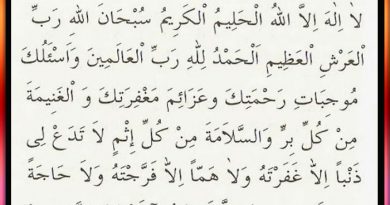 لاَ اِلٰهَ اِلاَّ اللهُ الْحَلِيمُ الْكَرِيمُ سُبْحَانَ اللهِ رَبِّ
الْعَرْشِ الْعَظِيمِ اَلْحَمْدُ لِلّٰهِ رَبِّ الْعَالَمِينَ وَاَسْئَلُكَ
مُوجِبَاتِ رَحْمَتِكَ وَعَزَائِمَ مَغْفِرَتِكَ وَ الْغَنِيمَةَ
مِنْ كُلِّ بِرٍّ وَالسَّلاَمَةَ مِنْ كُلِّ اِثْمٍ لاَ تَدَعْ لِى
ذَنْباً اِلاَّ غَفَرْتَهُ وَلاَ هَمًّا اِلاَّ فَرَّجْتَهُ وَلاَ حَاجَةً